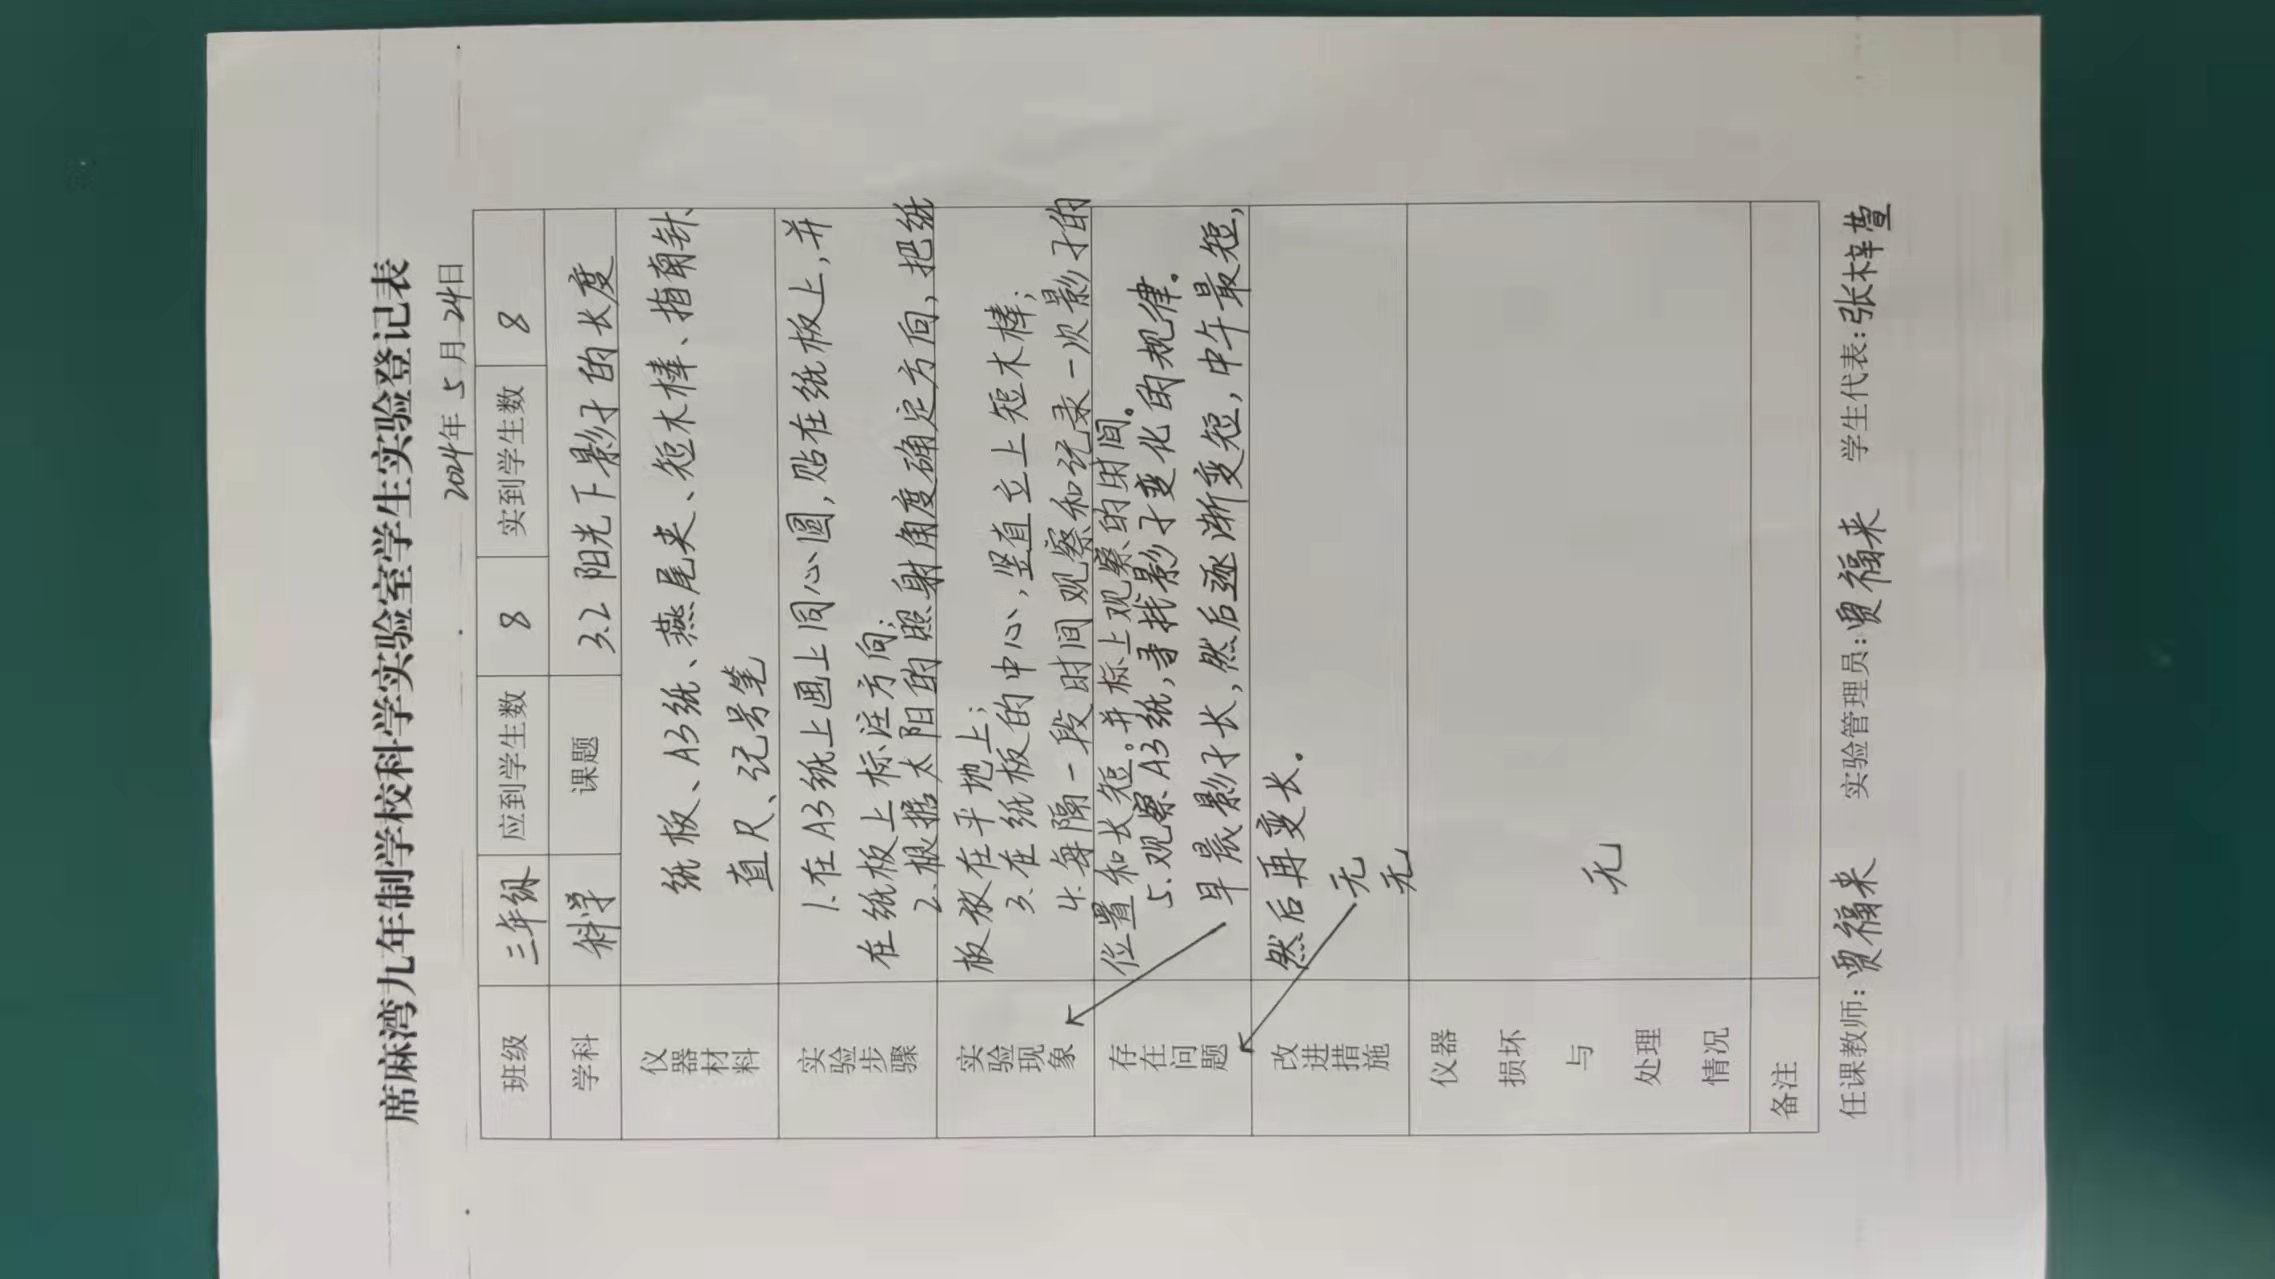 席麻湾九年制学校科学实验室学生实验登记表
2024年 5 月 24日
班级 三年级 应到学生数 8 实到学生数 8
学科 科学 课题 3.2 阳光下影子的长度
仪器材料 纸板、A3纸、燕尾夹、短木棒、指南针、
直尺、记号笔
实验步骤 1.在A3纸上画上同心圆,贴在纸板上,并
在纸板上标注方向;
2.根据太阳的照射角度确定方向,把纸
实验现象 板放在平地上;
3.在纸板的中心,竖直立上短木棒;
4.每隔一段时间观察和记录一次影子的
存在问题 位置和长短。并标上观察的时间。
5.观察A3纸,寻找影子变化的规律。
早晨影子长,然后逐渐变短,中午最短,
改进措施 然后再变长。
无
无
仪器损坏与处理情况 无
备注
任课教师:贾福来 实验管理员:贾福来 学生代表:张梓萱